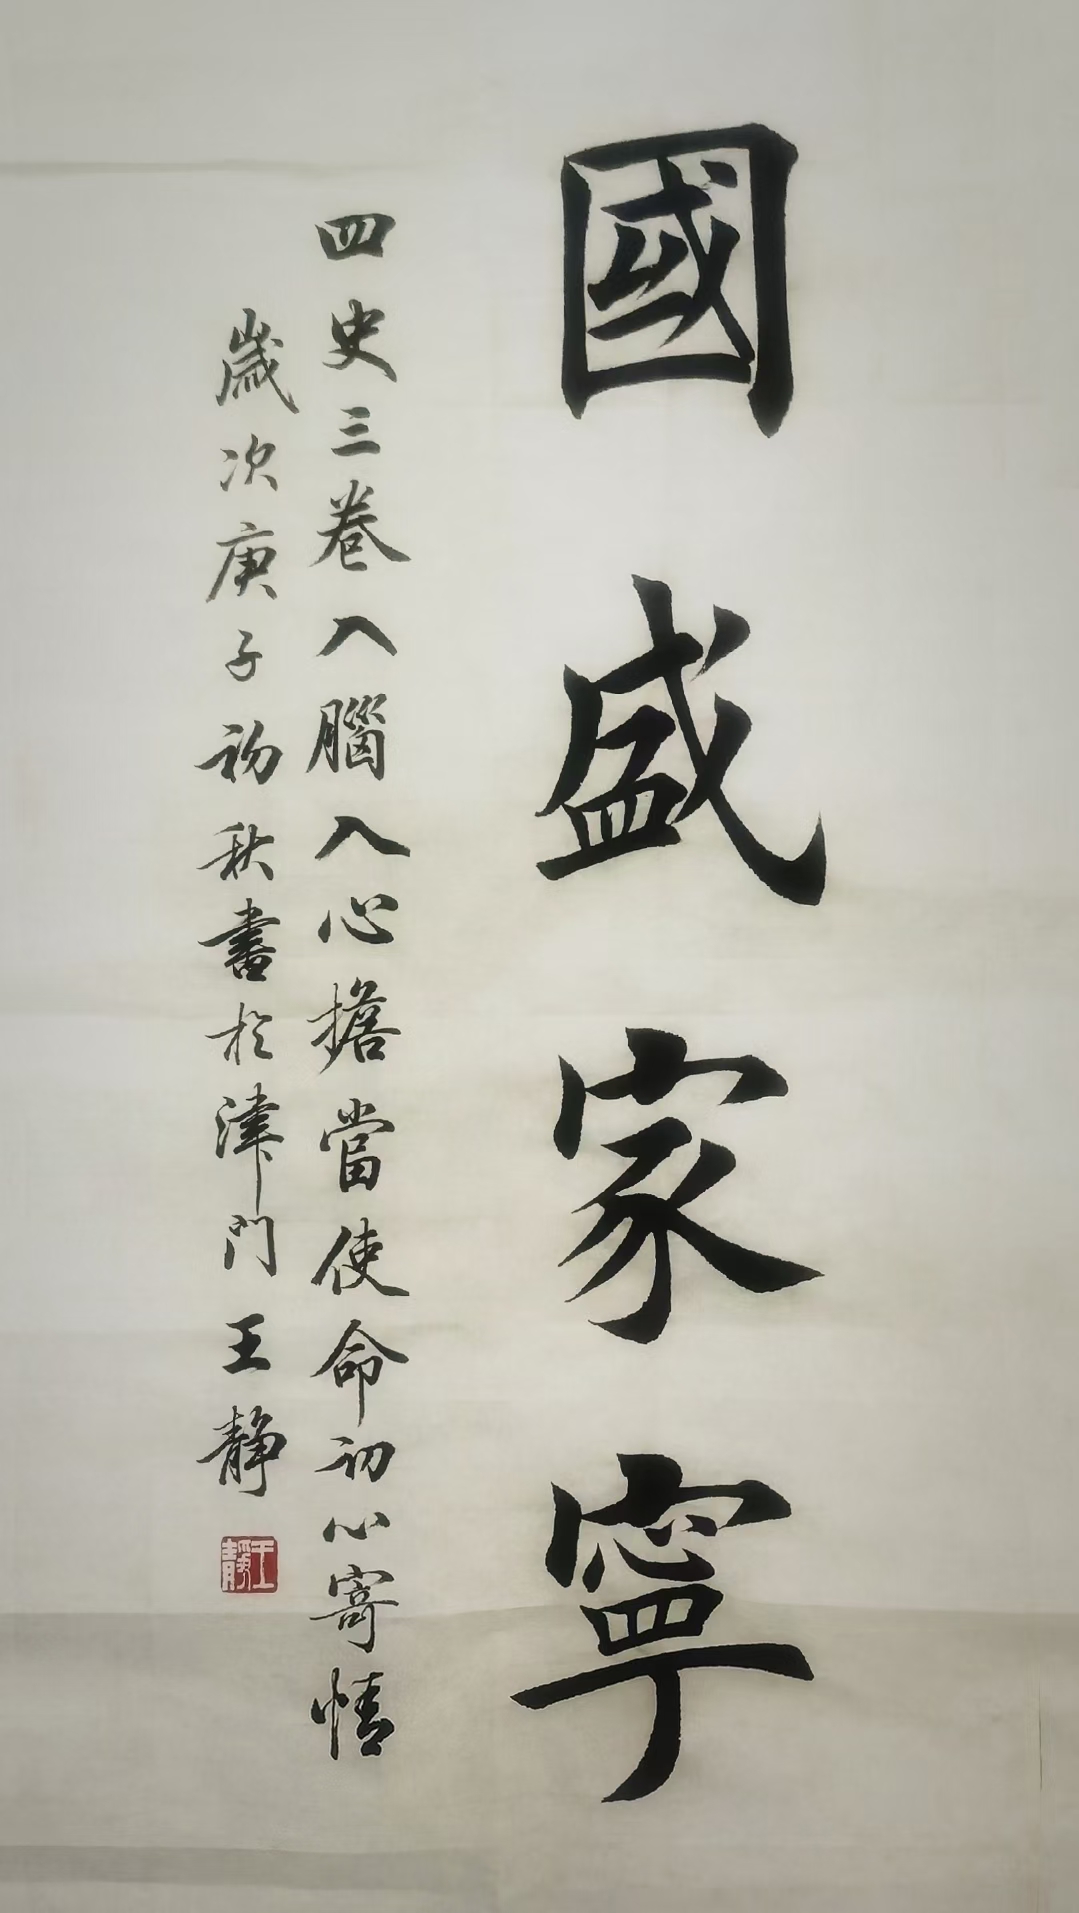 國盛家寧
四史三卷入腦入心擔當使命初心寄情
歲次庚子初秋書於津門王靜
王靜